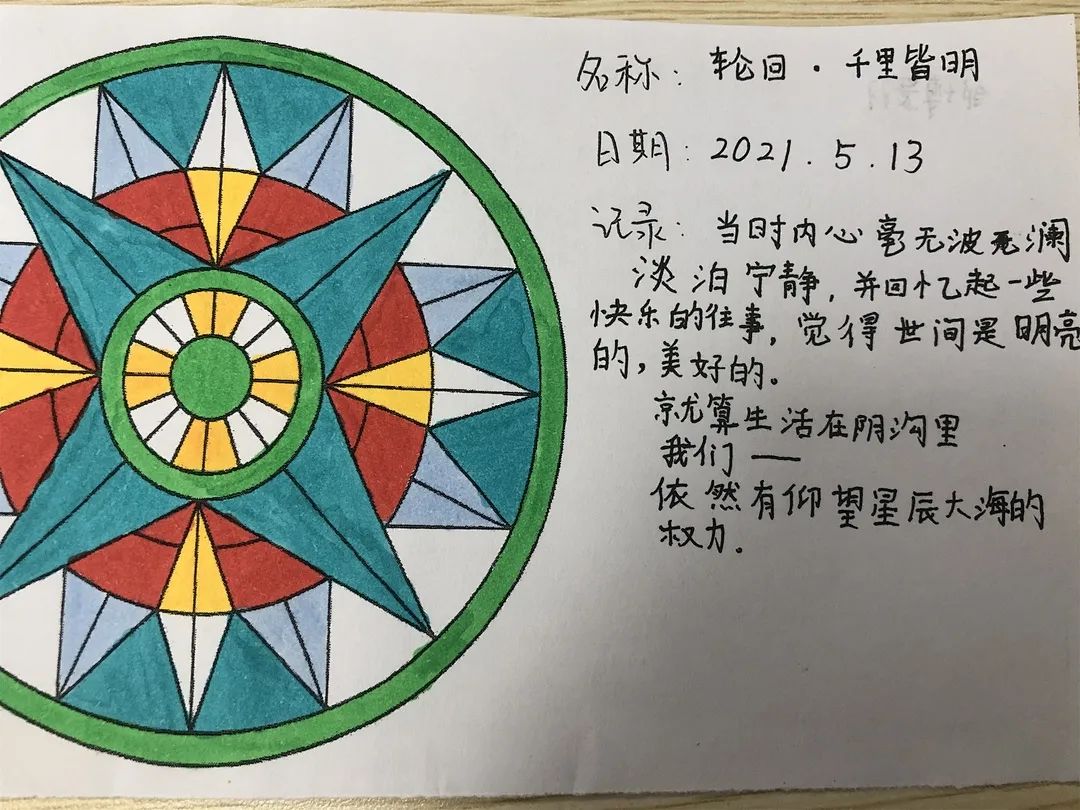 名称：轮回·千里皆明
日期：2021.5.13
记录：当时内心毫无波无澜
淡泊宁静，并回忆起一些
快乐的往事，觉得世间是明亮
的，美好的。
就算生活在阴沟里
我们——
依然有仰望星辰大海的
权力.